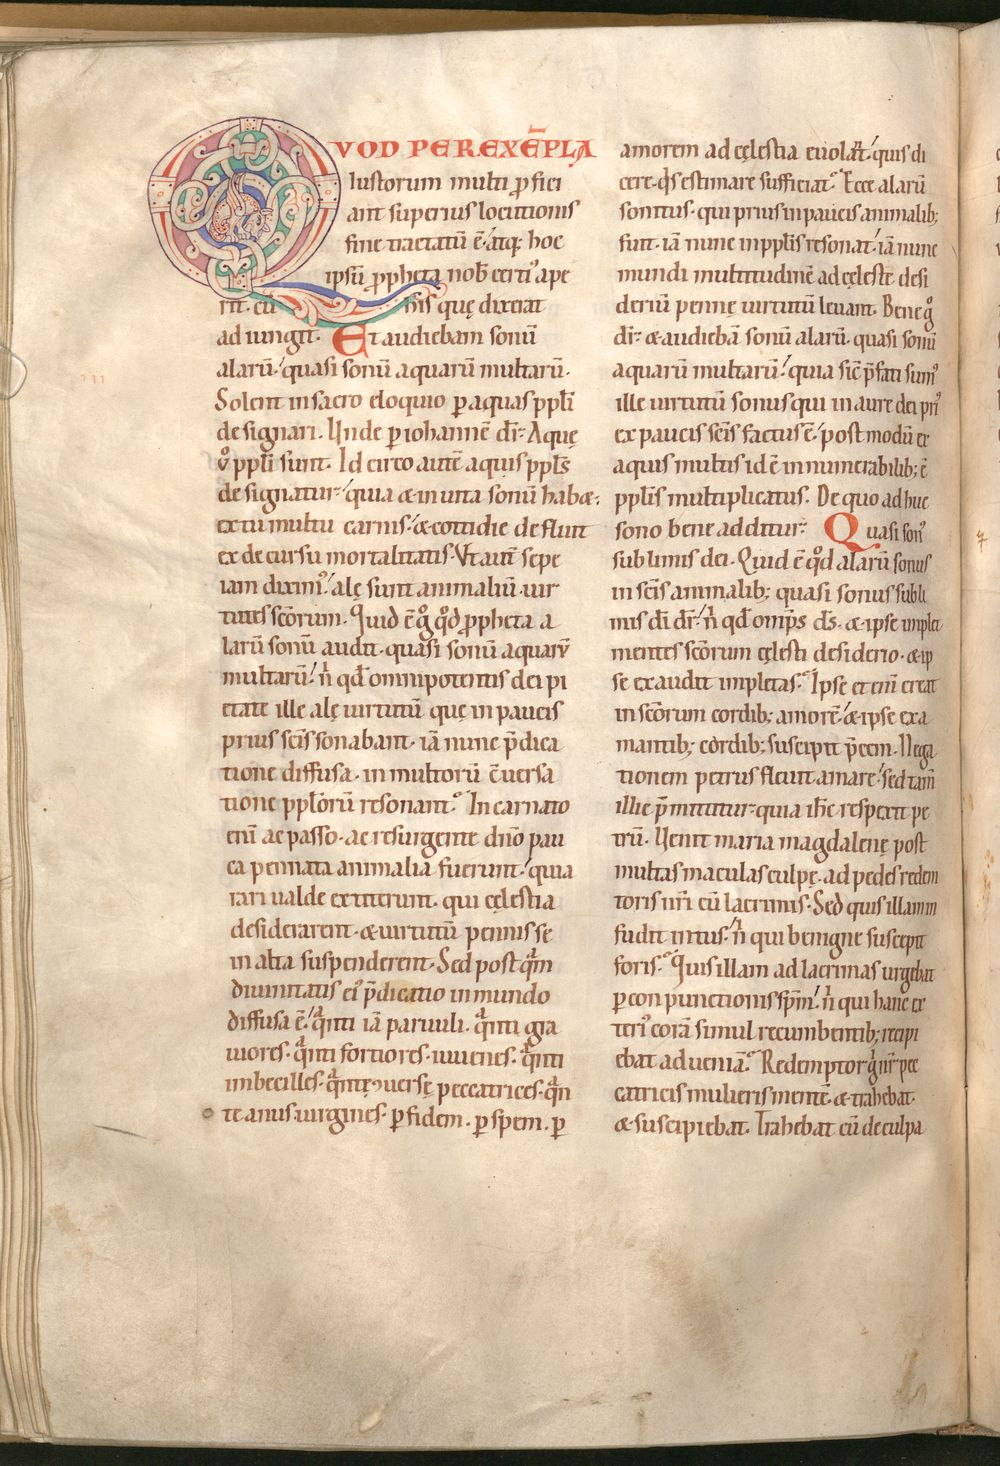 QVOD PER EXĒPLA
Iustorum multi ꝓfici
ant superius locutionis
fine tractatū ē. atq; hoc
ipsū ꝓpheta nob̄ certiꝰ ape
rit. cū his quę dixerat
ad iungit. Et audiebam sonū
alarū. quasi sonū aquarū multarū.
Solent in sacro eloquio ꝑ aquas ppłi
designari. Unde ꝑ iohannē dr̄. Aquę
v͛ ppłi sunt. Idcirco autē aquis ppłs
designatur. quia & in uita sonū habæ.
ex tumultu carnis. & cottidie defluit
ex decursu mortalitatis. Vt aut̄ sepe
iam diximꝰ. alę sunt animaliū. uir
tutes sc̄orum. Quid ē g̊ qđ ꝓpheta a
larū sonū audit. quasi sonū aquarū
multarū. n̄ qđ omnipotentis dei pi
etate ille alę uirtutū quę in paucis
prius sc̄is sonabant. iā nunc p̄dica
tione diffusa. in multorū ꝯuersa
tione pplōrū resonant. Incarnato
eni ac passo. ac resurgente dn̄o pau
ca pennata animalia fuerunt. quia
rari ualde extiterunt. qui cęlestia
desiderarent. & uirtutū pennis se
in alta suspenderent. Sed postqͣm
diuinitatis eiꝰ p̄dicatio in mundo
diffusa ē. qͣnti iā paruuli. qͣnti gra
uiores. qͣnti fortiores iuuenes. qͣnti
imbecilles. qͣntę ꝯuersę peccatrices. qͣn
tę anus uirgines. ꝑ fidem. ꝑ spem. ꝑ
amorem ad cęlestia euolāt. quis di
cere. qͥs estimare sufficiat. Ecce alarū
sonitus. qui prius in paucis animalib;
fuit. iā nunc in ppłis resonat. iā nunc
mundi multitudinē ad cęleste desi
deriū pennę uirtutū leuant. Bene g̊
dr̄. & audiebā sonū alarū. quasi sonū
aquarū multarū. quia sic̄ p̄fati sumꝰ
ille uirtutū sonus qui in aure dei priꝰ
ex paucis sc̄is factus ē. postmodū ex
aquis multis id ē innumerabilib; ē
ppłis multiplicatus. De quo adhuc
sono bene additur. Quasi sonꝰ
sublimis dei. Quid ē qđ alarū sonus
in sc̄is animalib; quasi sonus subli
mis dī dr̄. n̄ qđ omp̄s ds̄. & ipse implet
mentes sc̄orum cęlesti desiderio. & ip
se exaudit impletas. Ipse etenī creat
in sc̄orum cordib; amorē. & ipse exa
mantib; cordib; suscipit p̄cem. Nega
tionem petrus fleuit amare. sed tam̄
illic p̄mittitur. quia ihc̄ respexit pe
trū. Uenit maria magdalenę post
multas maculas culpę. ad pedes redem
toris nr̄i cū lacrimis. Sed quis illam in
fudit intus. n̄ qui benigne suscepit
foris. Quis illam ad lacrimas urgebat
ꝑ conpunctionis sp̄m. n̄ qui hanc ex
teriꝰ corā simul recumbentib; recipi
ebat ad ueniā. Redemptor g̊ nr̄ pec
catricis mulieris mentē. & trahebat.
& suscipiebat. Trahebat cū de culpa